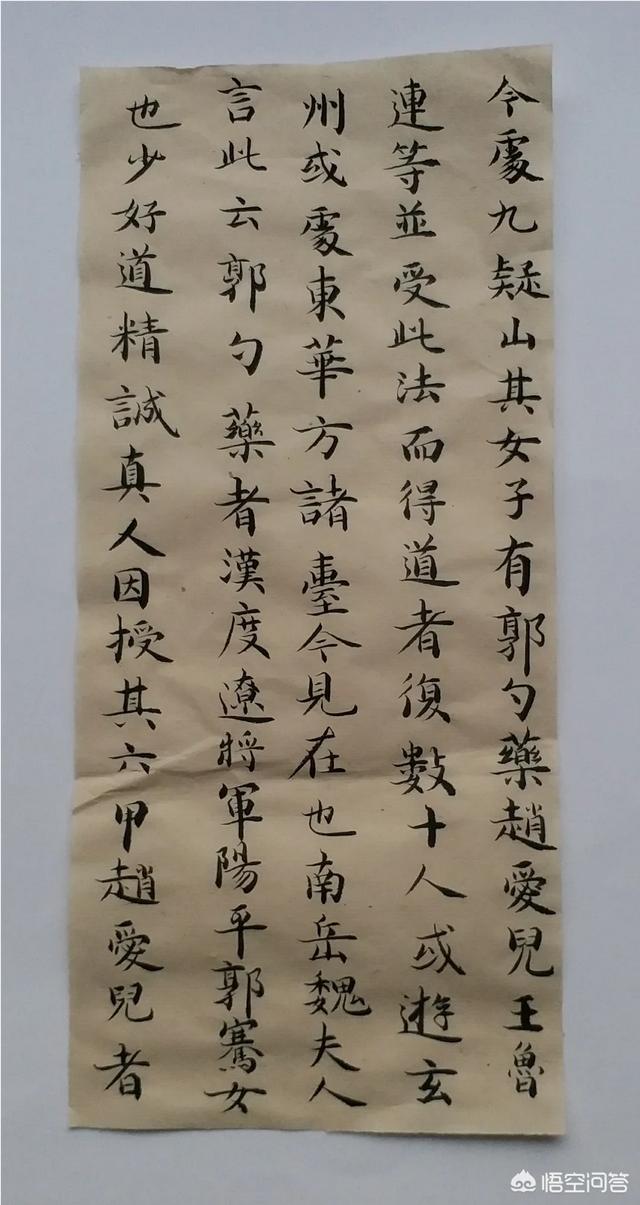 令處九疑山其女子有郭勺藥趙愛兒王魯
連等並受此法而得道者復數十人或遊玄
州或處東華方諸臺今見在也南岳魏夫人
言此云郭勺藥者漢度遼將軍陽平郭騫女
也少好道精誠真人因授其六甲趙愛兒者
悟空问答